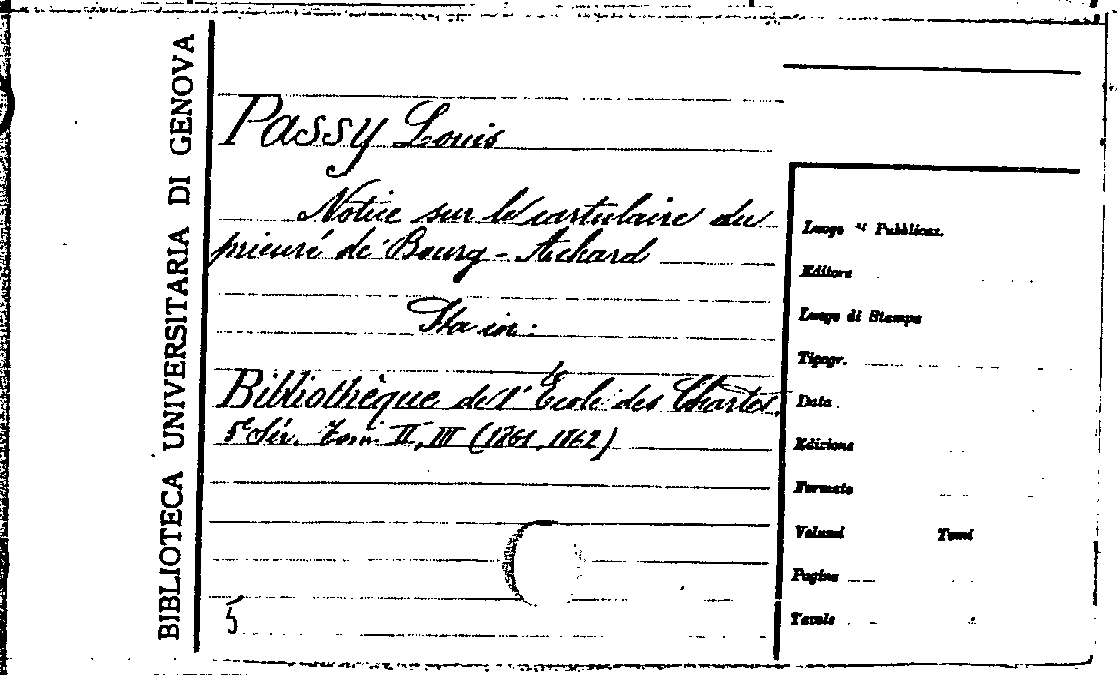 BIBLIOTECA UNIVERSITARIA DI GENOVA
Passy Louis
Notice sur le cartulaire du
prieuré de Bourg-Achard
Sta in:
Bibliothèque de l'École des Chartes.
5e Sér. Tom. II, III (1861, 1862)
5
Luogo di Pubblicaz.
Editore
Luogo di Stampa
Tipogr.
Data
Edizione
Formato
Volumi Tomi
Pagine
Tavole